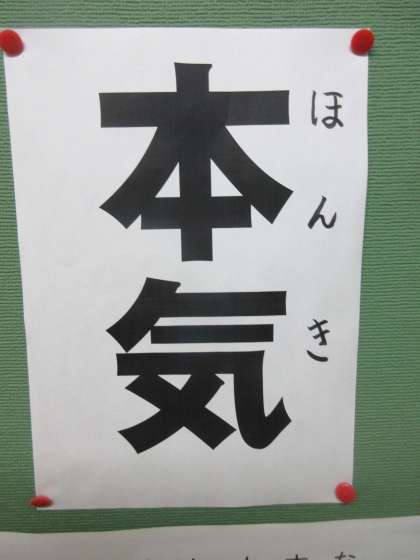 本気
ほんき